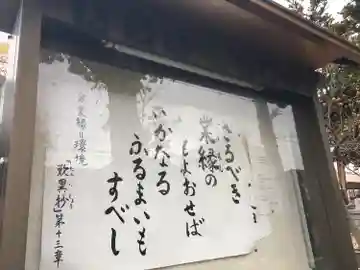 さるべき
業縁の
もよおせば
いかなる
ふるまいも
すべし
業縁＝環境
『歎異抄』第十三章